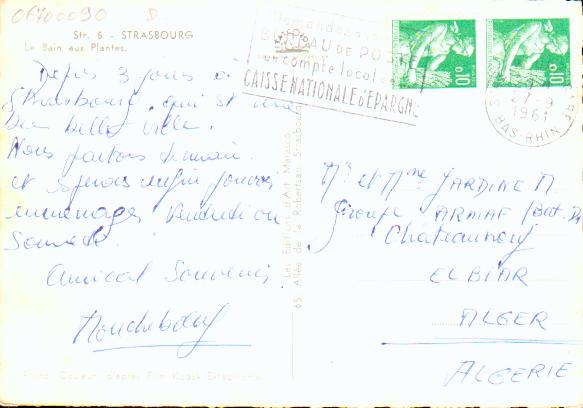 06700090 D
Str. 5 - STRASBOURG
Le Bain aux Plantes.
Demandez à votre
BUREAU DE POSTE
un compte local
CAISSE NATIONALE d'EPARGNE
0,10
0,10
27-9
1961
BAS-RHIN
Depuis 3 jours à
Strasbourg, qui est une
bien belle ville.
Nous partons demain.
et espérons enfin pouvoir
emménager Vendredi ou
Samedi.
Amical Souvenir
Les Editions d'Art Marasco
65 Allée de la Robertsau Strasbourg
Mr et Mme JARDINE M
Groupe ARMAF (Bat. D)
Chateauneuf
EL BIAR
ALGER
ALGERIE
Photo Couleur d'après Film Kodak Ektachrome